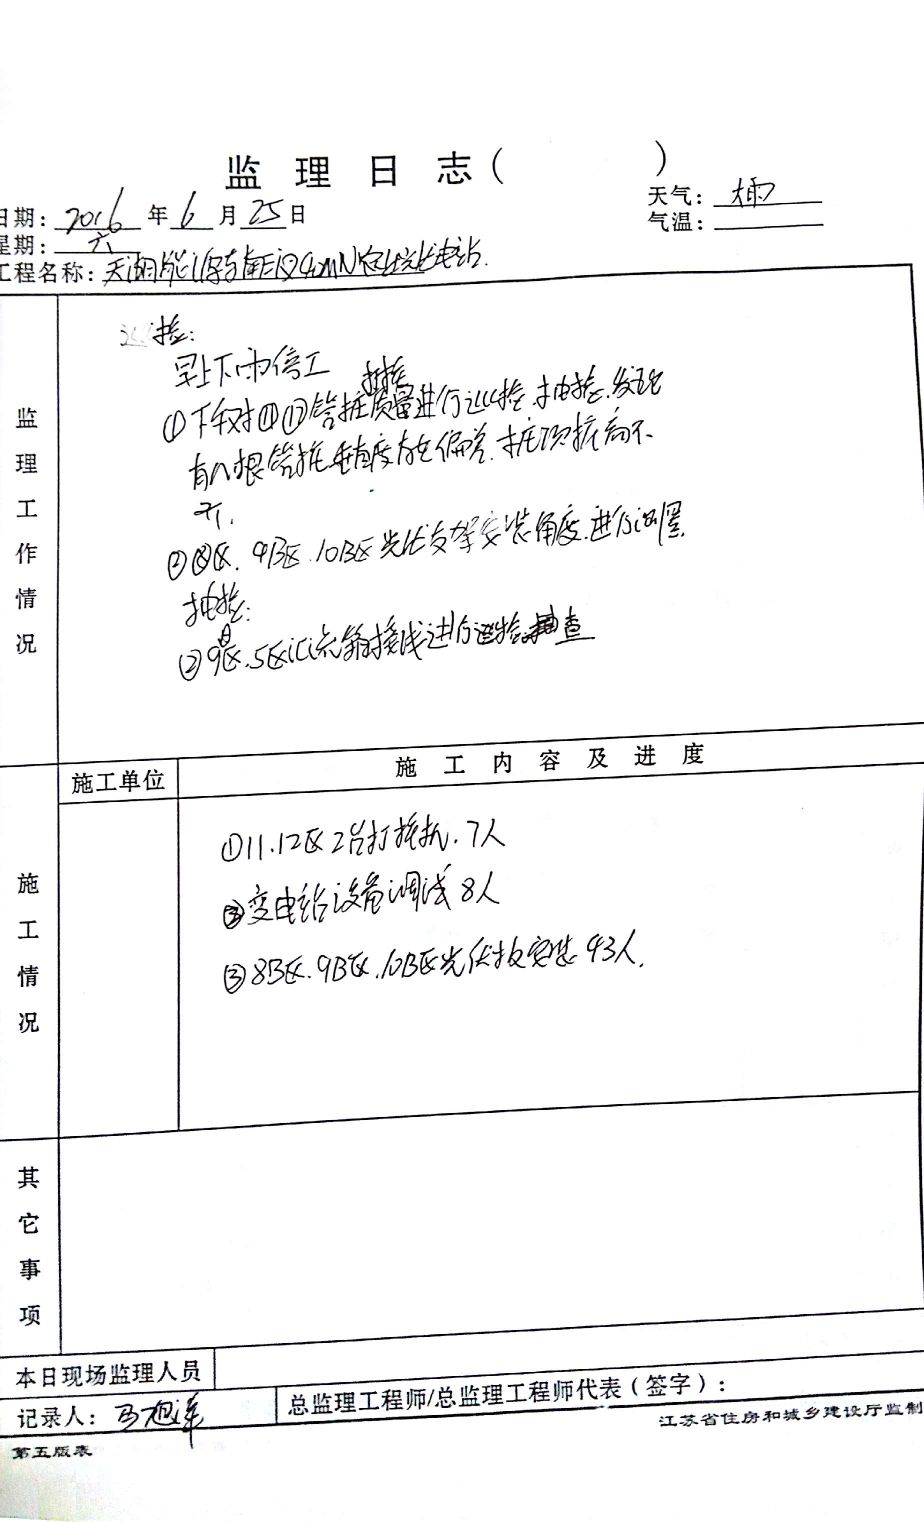 监理日志（ ）
日期：2016年6月25日
天气：大雨
星期：六
气温：
工程名称：天湖能源 40MW 光伏电站.
监理工作情况
巡检：
早上下雨停工
抽检
①下午对⑪⑫管桩质量进行巡检、抽检.发现
有八根管桩垂直度存在偏差.桩顶标高不
齐.
②8区.9B区.10B区光伏支架安装角度.进行设置
抽检：
②9B区.5区汇流箱接线进行巡检抽查
施工情况
施工单位
施工内容及进度
①11.12区2台打桩机.7人
②变电站设备调试8人
③8B区.9B区.10B区光伏板安装43人.
其它事项
本日现场监理人员
记录人：马旭洋
总监理工程师/总监理工程师代表（签字）：
第五版表
江苏省住房和城乡建设厅监制